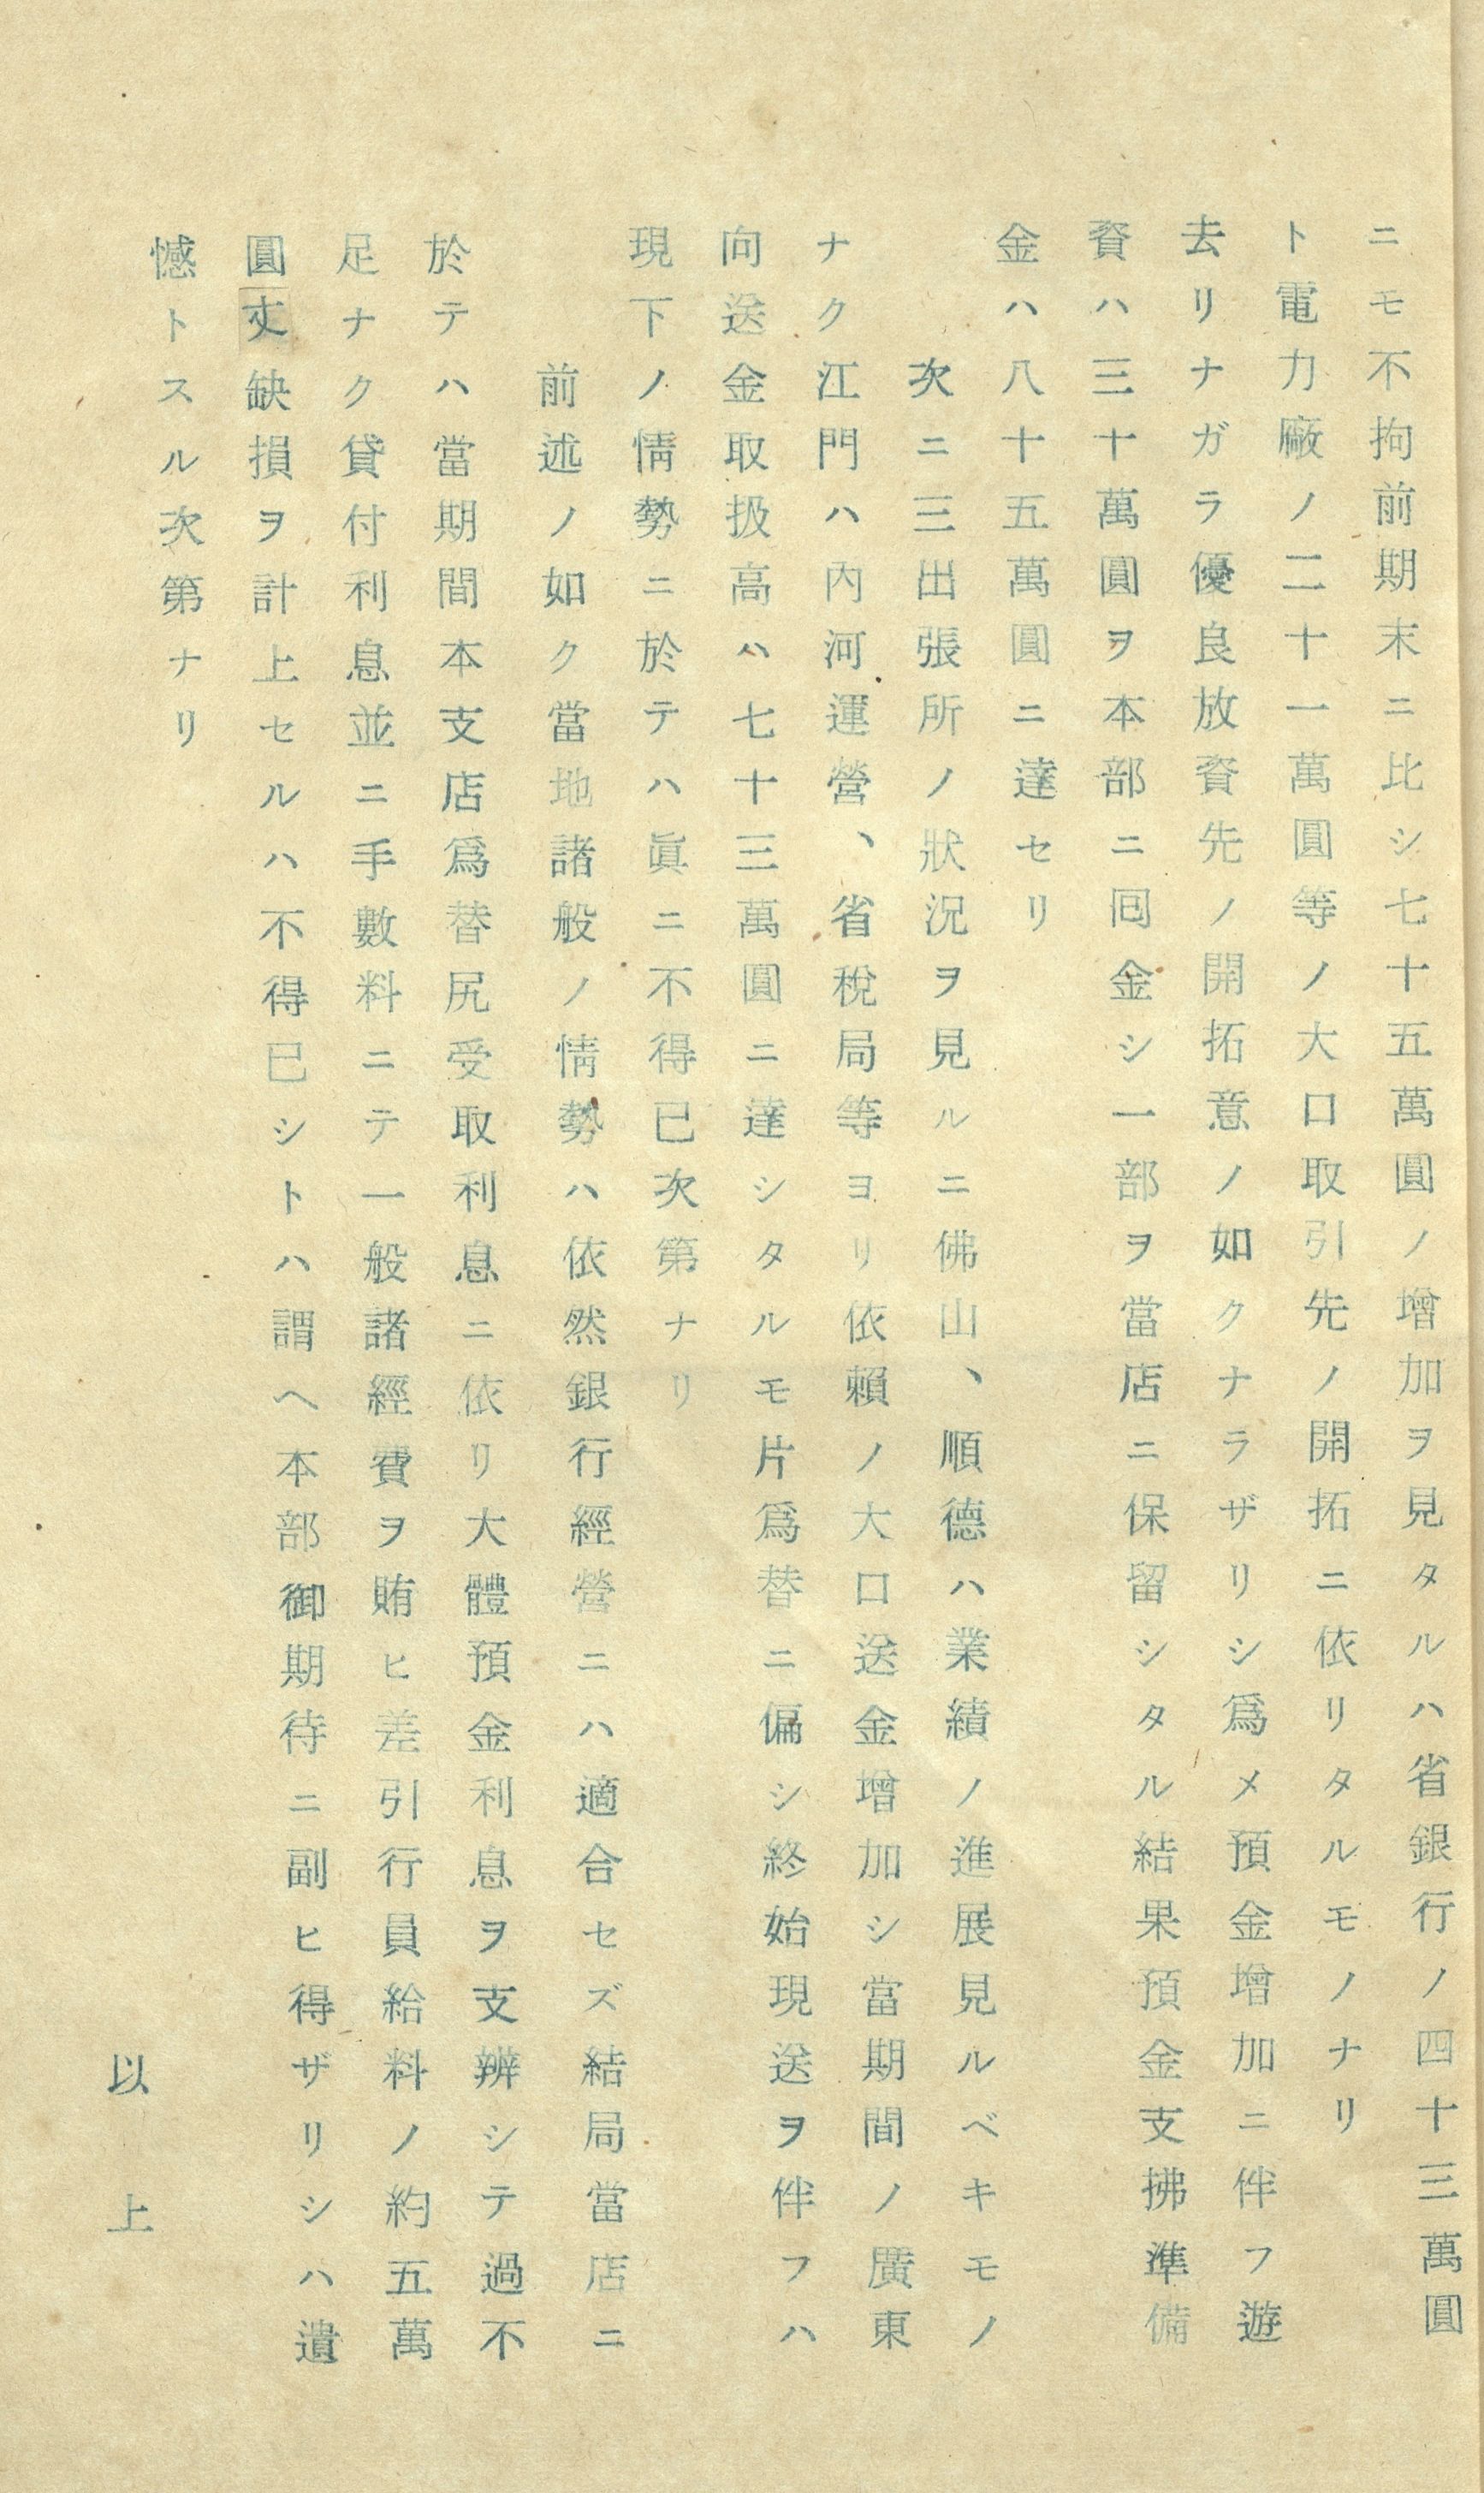 ニモ不拘前期末ニ比シ七十五萬圓ノ增加ヲ見タルハ省銀行ノ四十三萬圓
ト電力廠ノ二十一萬圓等ノ大口取引先ノ開拓ニ依リタルモノナリ
去リナガラ優良放資先ノ開拓意ノ如クナラザリシ爲メ預金增加ニ伴フ遊
資ハ三十萬圓ヲ本部ニ囘金シ一部ヲ當店ニ保留シタル結果預金支拂準備
金ハ八十五萬圓ニ達セリ
次ニ三出張所ノ狀況ヲ見ルニ佛山、順德ハ業績ノ進展見ルベキモノ
ナク江門ハ內河運營、省稅局等ヨリ依賴ノ大口送金增加シ當期間ノ廣東
向送金取扱高ハ七十三萬圓ニ達シタルモ片爲替ニ偏シ終始現送ヲ伴フハ
現下ノ情勢ニ於テハ眞ニ不得已次第ナリ
前述ノ如ク當地諸般ノ情勢ハ依然銀行經營ニハ適合セズ結局當店ニ
於テハ當期間本支店爲替尻受取利息ニ依リ大體預金利息ヲ支辨シテ過不
足ナク貸付利息並ニ手數料ニテ一般諸經費ヲ賄ヒ差引行員給料ノ約五萬
圓丈缺損ヲ計上セルハ不得已シトハ謂ヘ本部御期待ニ副ヒ得ザリシハ遺
憾トスル次第ナリ
以上